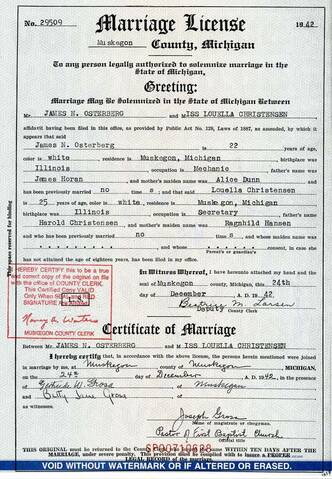 No. 29509 Marriage License 1942
Muskegon County, Michigan
To any person legally authorized to solemnize marriage in the
State of Michigan,
Greeting:
Marriage May Be Solemnized in the State of Michigan Between
Mr. JAMES N. OSTERBERG and MISS LOUELLA CHRISTENSEN
affidavit having been filed in this office, as provided by Public Act No. 128, Laws of 1887, as amended, by which it
appears that said
James N. Osterberg is 22 years of age,
color is white, residence is Muskegon, Michigan birthplace was
Illinois occupation is Mechanic father's name was
James Horan and mother's maiden name was Alice Dunn and
has been previously married no times; and that Louella Christensen
is 25 years of age, color is white, residence is Muskegon, Michigan
birthplace was Illinois occupation is Secretary father's name was
Harold Christensen and mother's maiden name was Ragnhild Hansen
and who has been previously married no times and whose maiden name was
and whose consent, in case she
has not attained the age of eighteen years, has been filed in my office.
This space reserved for binding
In Witness Whereof, I have hereunto attached my hand and the
seal of Muskegon county, Michigan, this 24th
day of December A. D. 1942.
Beatrice M. Larsen
Deputy County Clerk
I HEREBY CERTIFY this to be a true
and correct copy of the original on file
with the office of COUNTY CLERK.
This Certified Copy VALID
Only When SEAL and RED
SIGNATURE
Nancy A. Waters
MUSKEGON COUNTY CLERK
Certificate of Marriage
Between Mr. JAMES N. OSTERBERG and MISS LOUELLA CHRISTENSEN
I hereby certify that, in accordance with the above license, the persons herein mentioned were joined
in marriage by me, at Muskegon county of Muskegon, MICHIGAN,
on the 24th day of December A. D. 1942, in the presence of
Gertrude W. Gross of Muskegon
and Betty Jane Gross of
as witnesses.
Joseph Gross
Name of magistrate or clergyman.
Pastor of First Baptist Church
Official title.
SP00710628
This ORIGINAL must be returned to the COUNTY CLERK WITHIN TEN DAYS AFTER THE
MARRIAGE, under severe penalty.
LEGAL RECORD of the marriage.
VOID WITHOUT WATERMARK OR IF ALTERED OR ERASED.